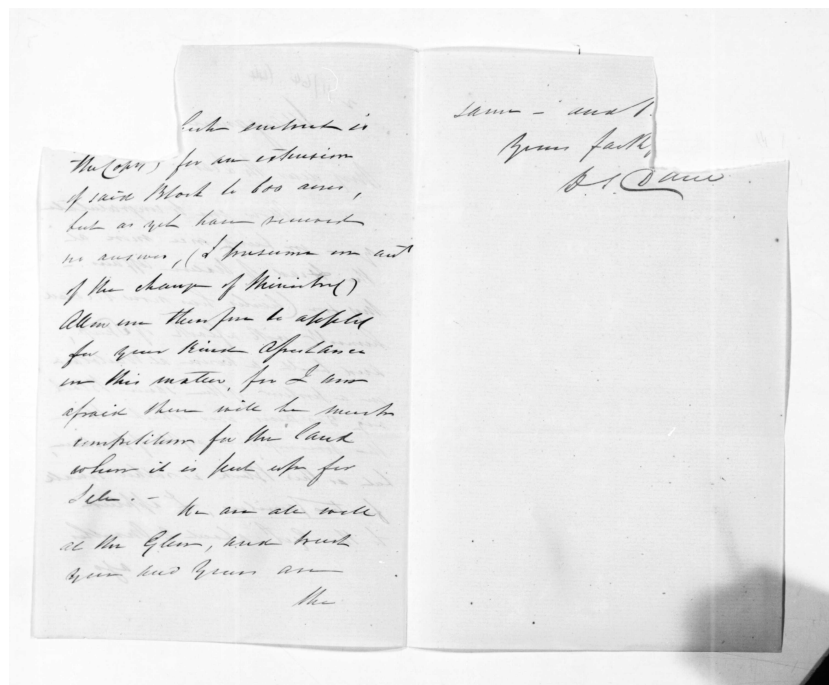 is
the Copy) for an extension
of said Block to 600 acres,
but as yet have received
no answer, (I presume on act
of the change of Ministry)
Allow me therefore to
for your kind assistance
in this matter, for I am
afraid there will be much
competition for the land
when it is put up for
Sale. -
We are all well
at the Glen, and trust
you and yours are
the
same - and
Yours faith